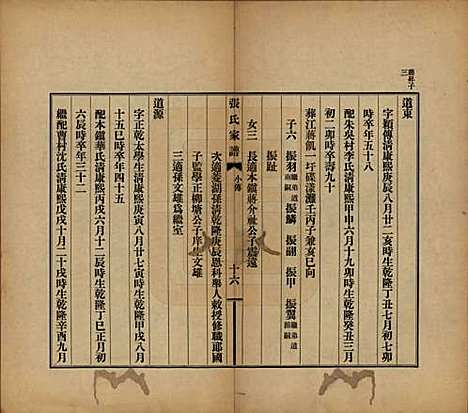 道東
字穎傳清康熙庚辰八月廿二亥時生乾隆丁丑七月初七卯
時卒年五十八
配朱吳村李氏清康熙甲申六月十九卯時生乾隆癸丑三月
初二卯時卒壽九十
葬江蔣凱一圩碟漾灘壬丙子兼亥巳向
子六 振羽 振鱗 振翮 振甲 振翼
振趾
女三 長適本鎮蔣分祉公子震遠
張氏家譜 小傳 十六
次適菱湖孫清乾隆庚辰恩科舉人敕授修職郎國
子監學正柳塘公子庠生文雄
三適孫文雄爲繼室
道源
字正乾太學生清康熙庚寅八月廿七寅時生乾隆甲戌八月
十五巳時卒年四十五
配本鎮華氏清康熙丙戌六月十二辰時生乾隆丁巳正月初
六辰時卒年三十二
繼配曹村沈氏清康熙戊戌十月二十戌時生乾隆辛酉九月